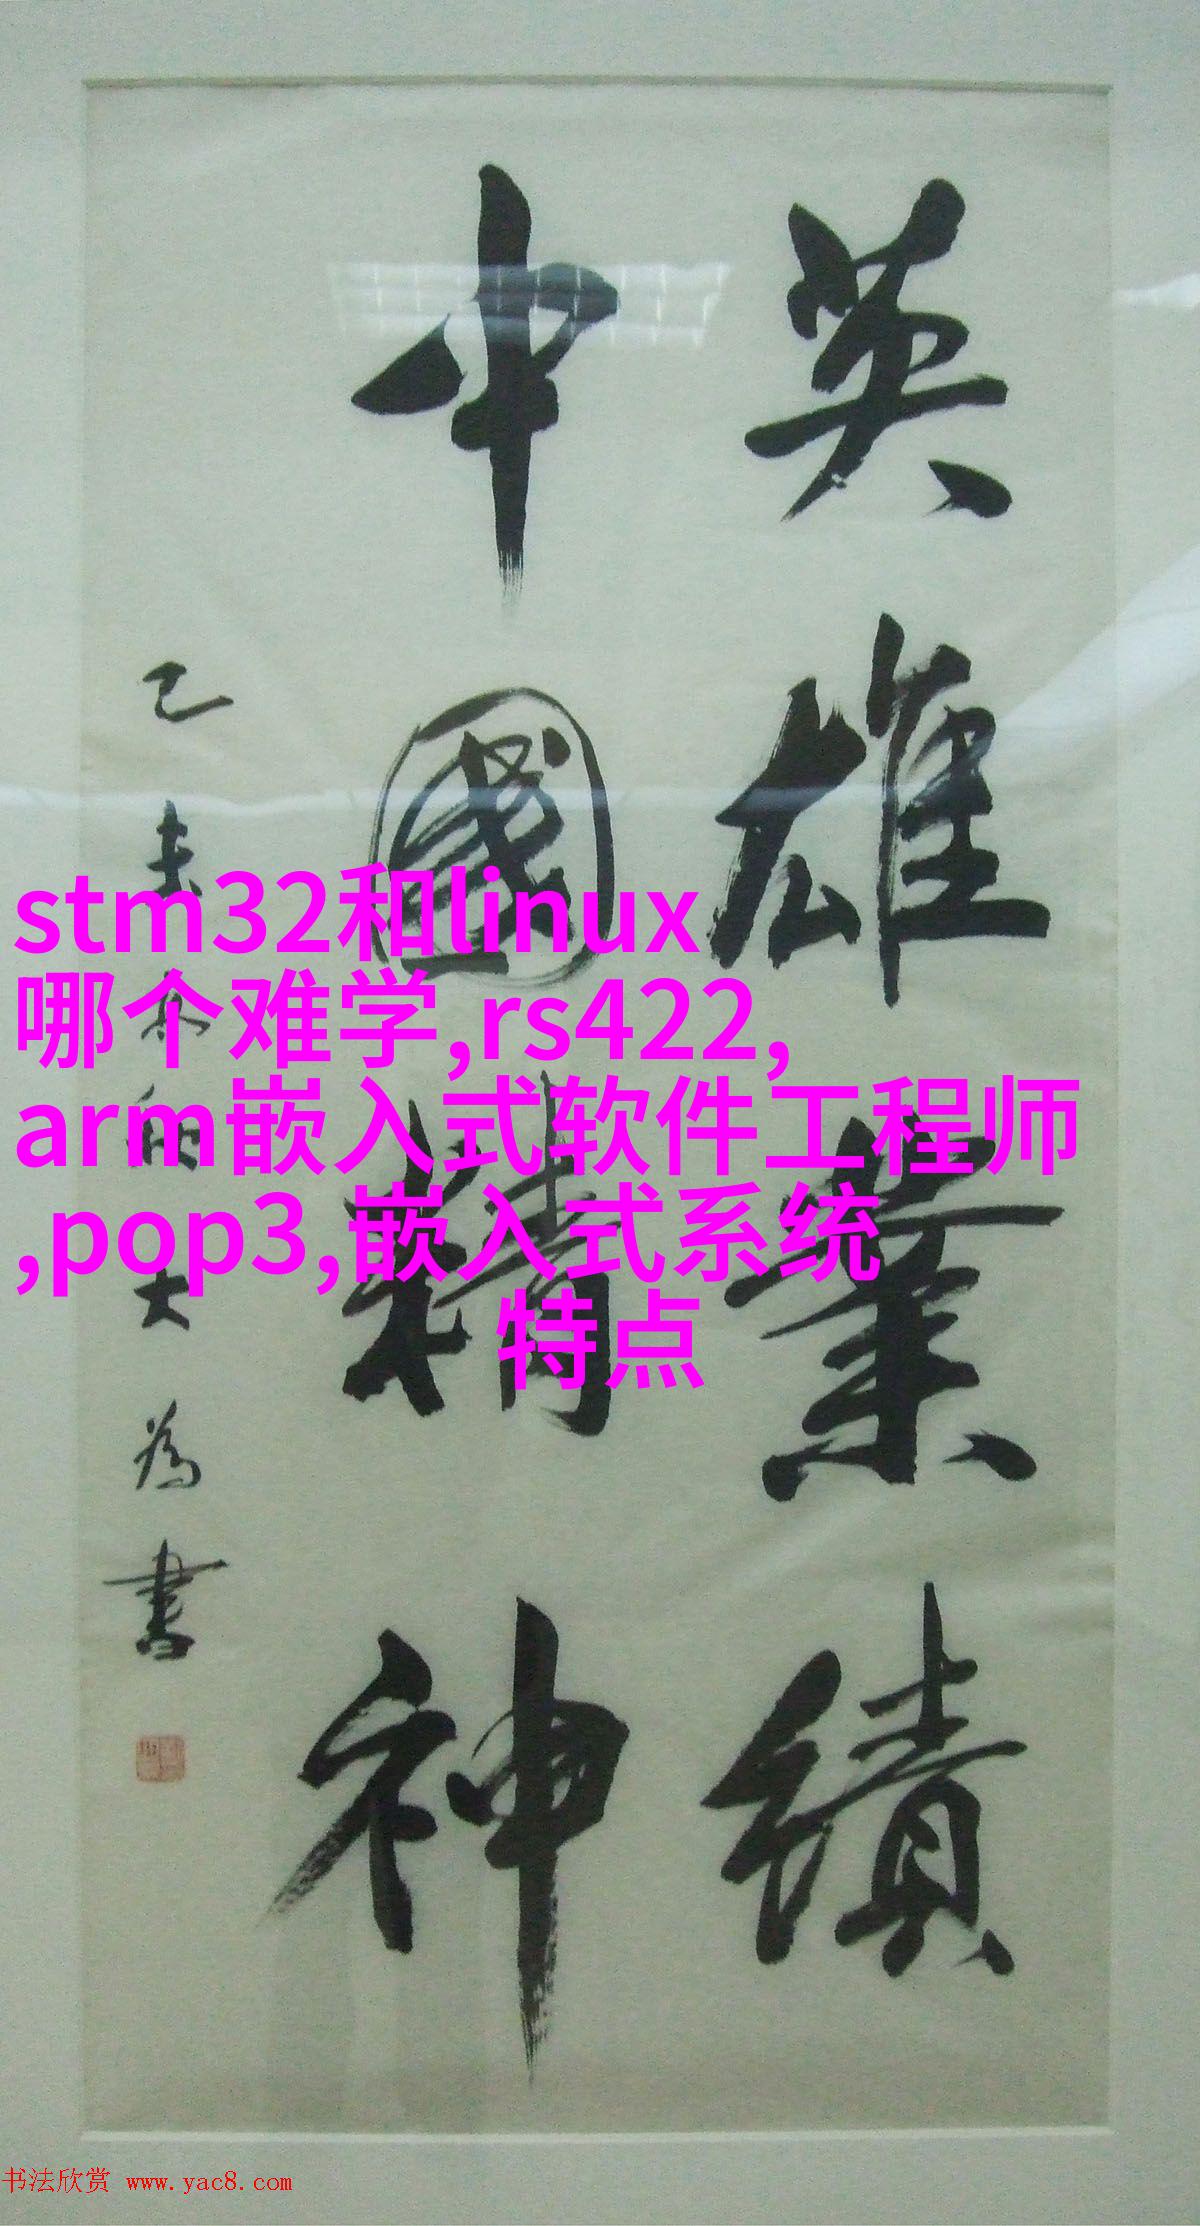 英雄業績
中國精神
大為書
stm32和linux
哪个难学,rs422,
arm嵌入式软件工程师
,pop3,嵌入式系统
特点
书法欣赏 www.yac8.com